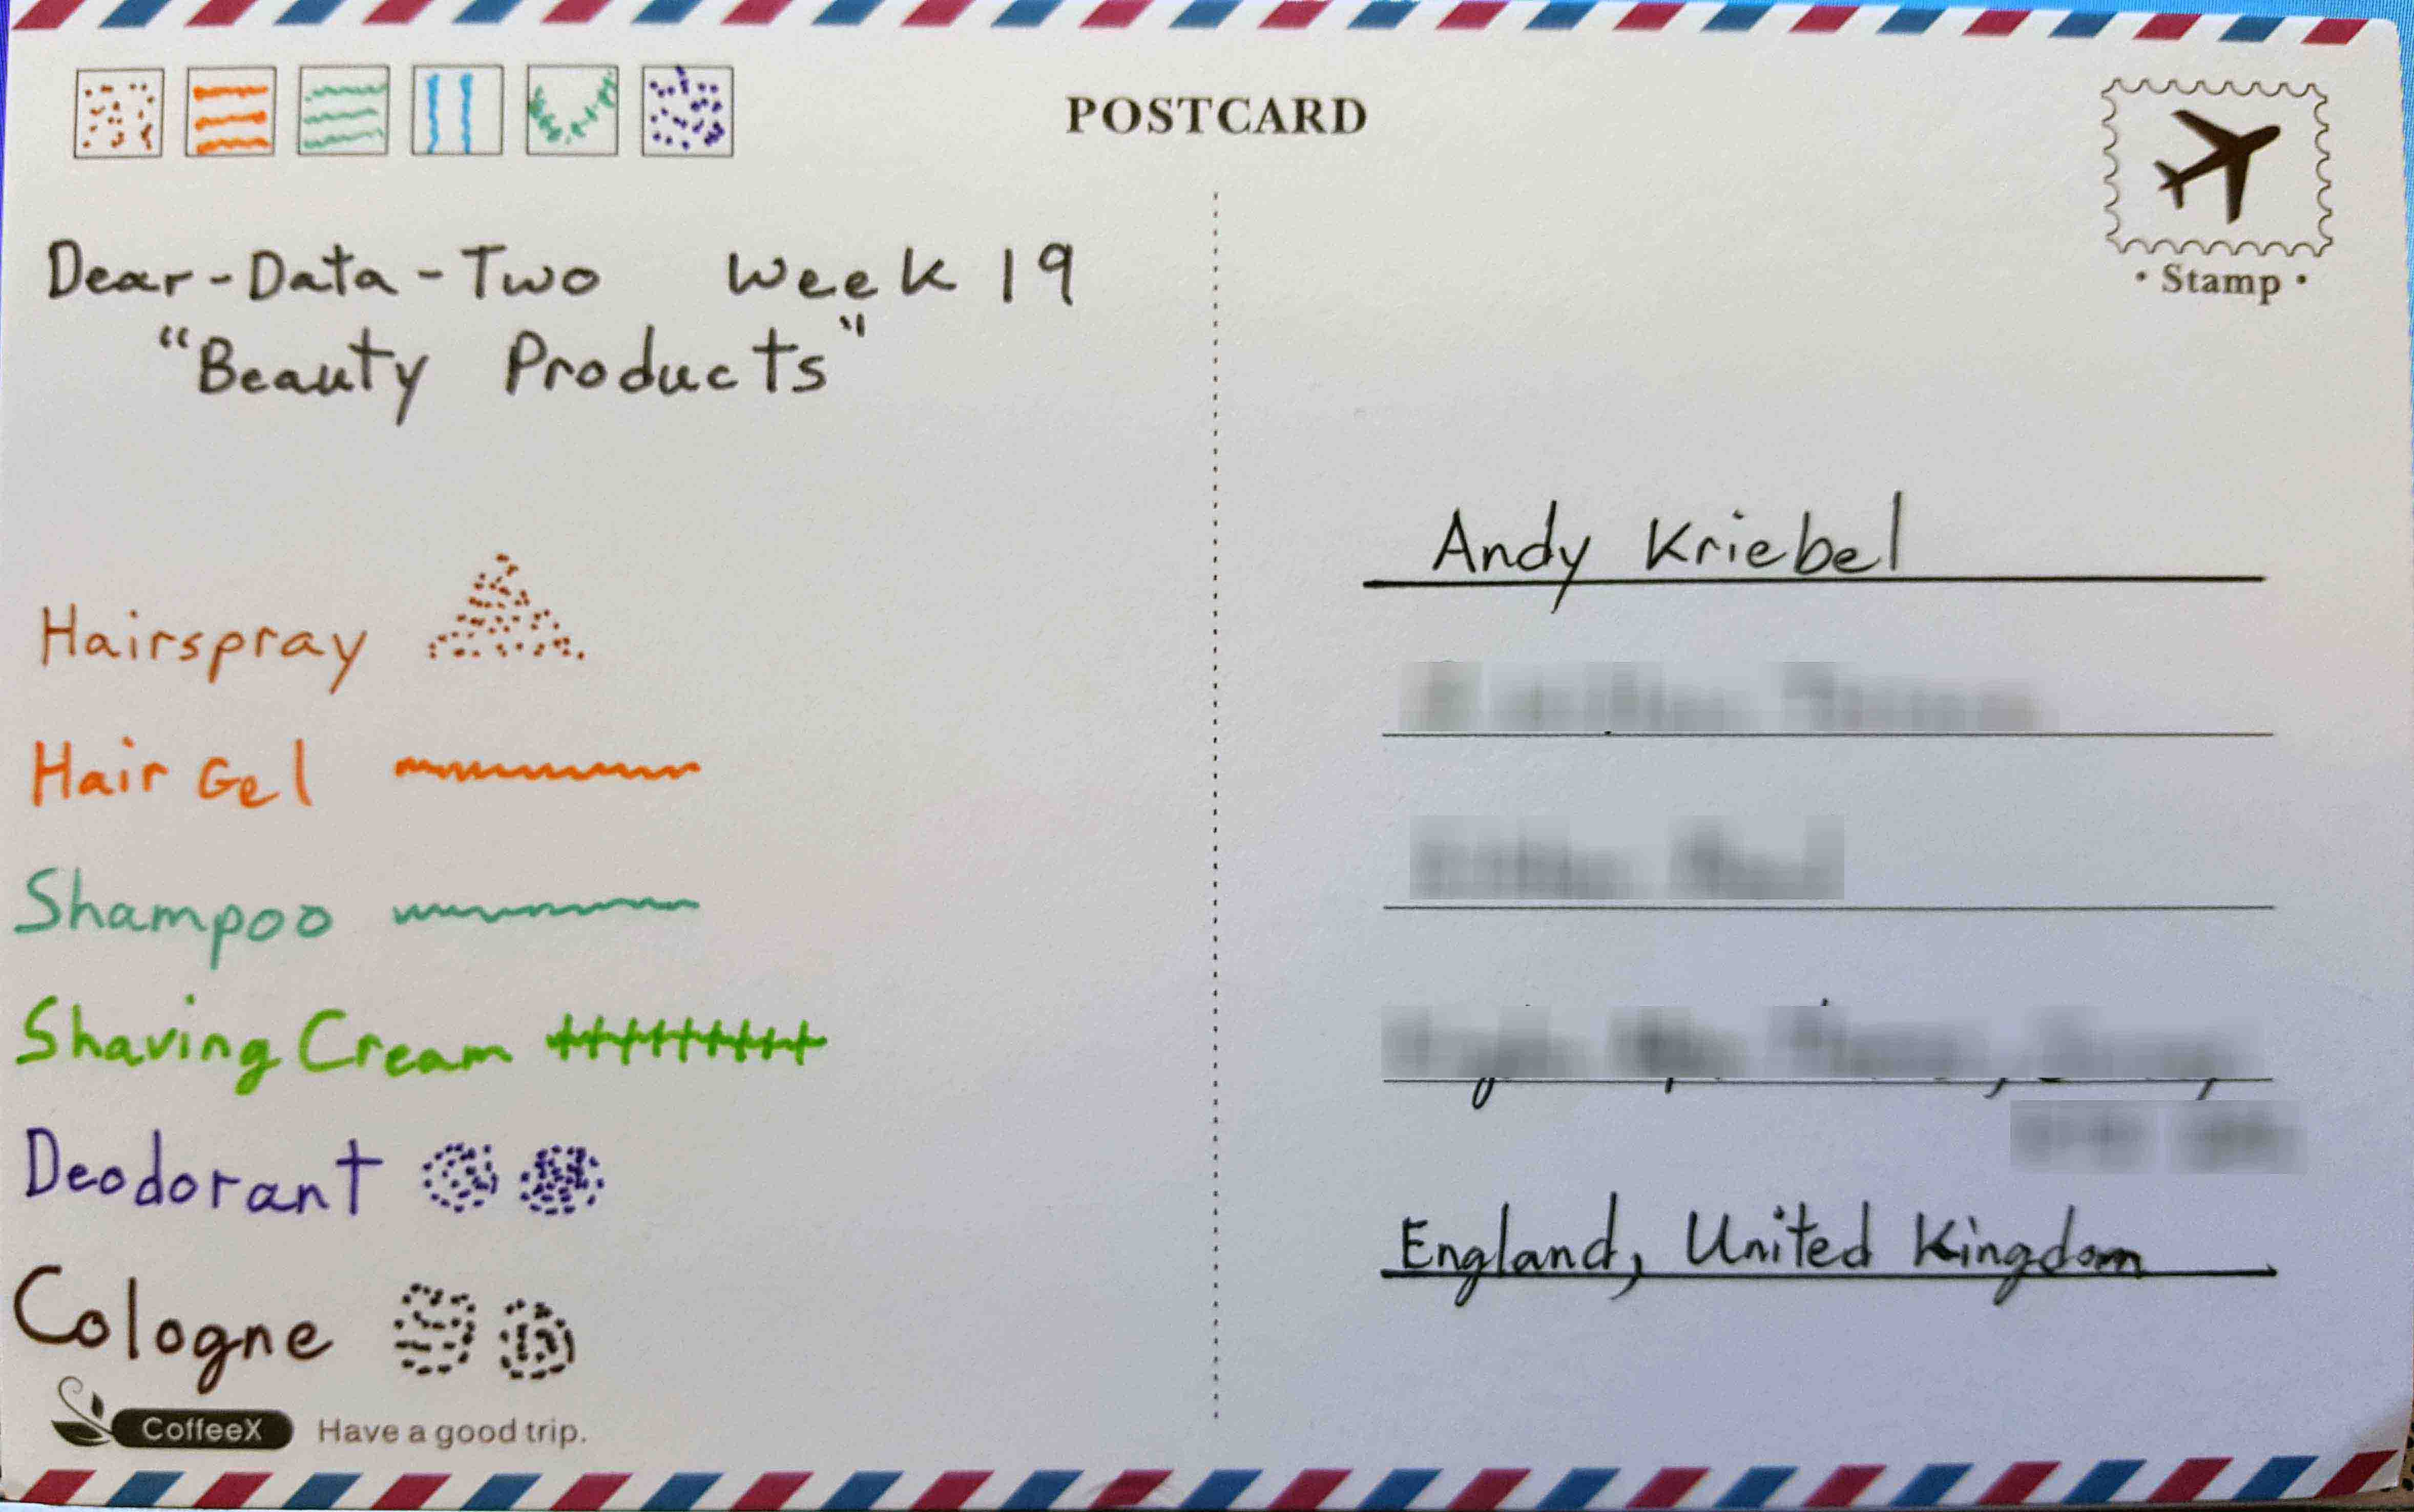 POSTCARD
• Stamp •
Dear-Data-Two Week 19
"Beauty Products"
Hairspray
Hair Gel
Shampoo
Shaving Cream
Deodorant
Cologne
CoffeeX Have a good trip.
Andy Kriebel
England, United Kingdom